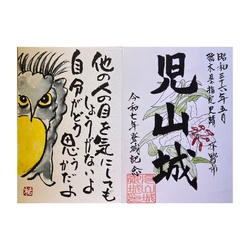 他の人の目を気にしても
しょうがないよ
自分がどう思うかだよ
昭和三十六年五月
栃木県指定史跡
下野市
児山城
令和七年登城記念